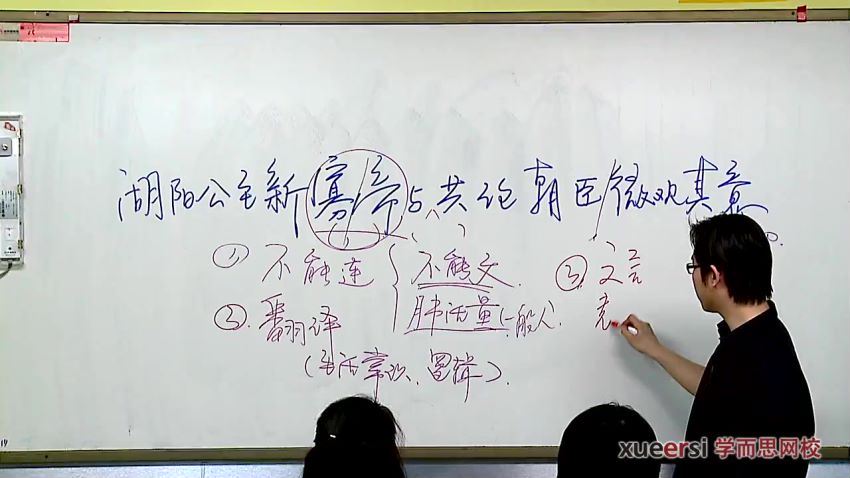 湖阳公主新寡/帝与共论朝臣/微观其意
① 不能连 { 不能文. ③ 文言
②. 翻译 肺活量(一般人).
(生活常识、逻辑).
xueersi 学而思网校